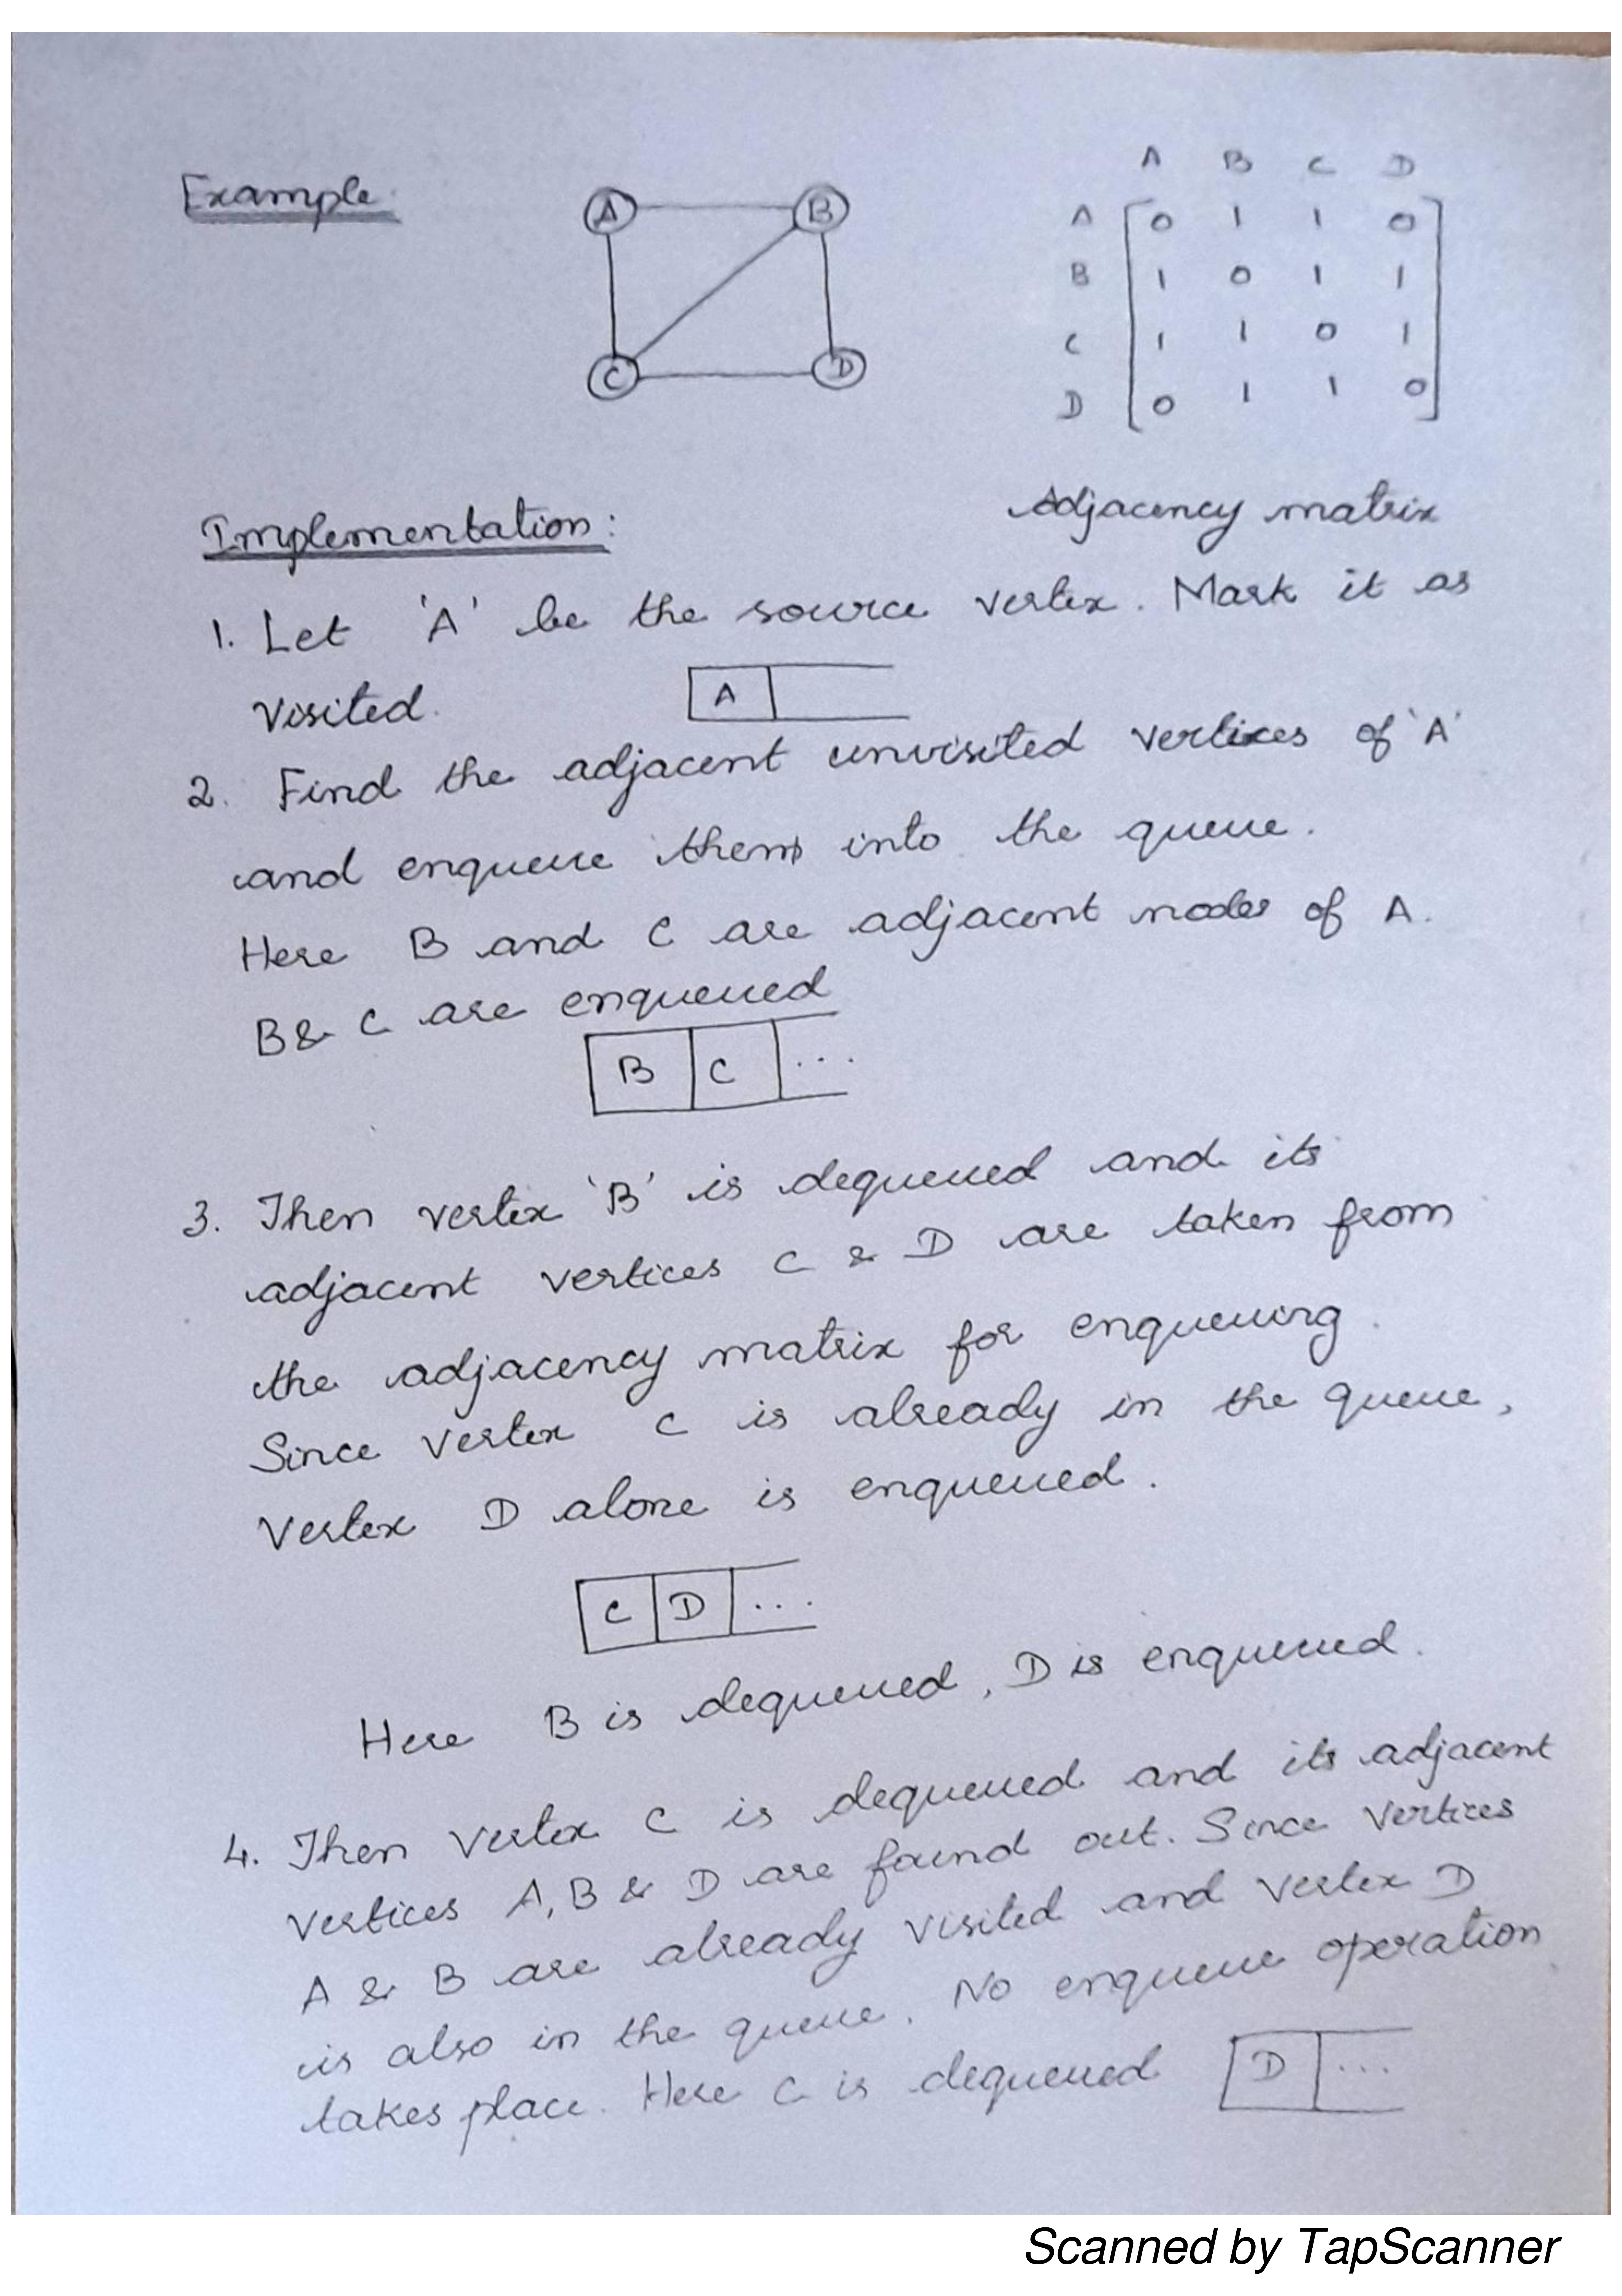 Example:
A B
C D
A B C D
A 0 1 1 0
B 1 0 1 1
C 1 1 0 1
D 0 1 1 0
Adjacency matrix
Implementation:
1. Let 'A' be the source vertex. Mark it as
visited.
A
2. Find the adjacent unvisited vertices of 'A'
and enqueue them into the queue.
Here B and C are adjacent nodes of A.
B & C are enqueued
B C ...
3. Then vertex 'B' is dequeued and its
adjacent vertices C & D are taken from
the adjacency matrix for enqueuing.
Since vertex C is already in the queue,
vertex D alone is enqueued.
C D ...
Here B is dequeued, D is enqueued.
4. Then vertex C is dequeued and its adjacent
vertices A, B & D are found out. Since vertices
A & B are already visited and vertex D
is also in the queue. No enqueue operation
takes place. Here C is dequeued D ...
Scanned by TapScanner